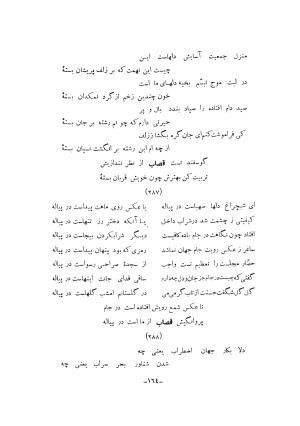 منزل جمعیت آسایش دلهاست این
چیست این تهمت که بر زلف پریشان بستهٔ
در لبت موج تبسم بخیهٔ دلهای ما است
خون چندین زخم از گرد نمکدان بستهٔ
صید دام افتاده را صیاد بندد بال و پر
حیرتی دارم که چو ام رشته بر جان بستهٔ
کی فراموشت کنم ای جان گره بگشا ز زلف
از چه ام این رشته بر انگشت نسیان بستهٔ
گوسفند تست قصاب از نظر نندازیش
تربیت کن بهترش چون خویش قربان بستهٔ
(۲۸۷)
ای شبچراغ دلها صهباست در پیاله
یا عکس روی ماهت پیداست در پیاله
کیفیتی ز چشمت شد در شراب داخل
یا آنکه دختر رز تنهاست در پیاله
افتاد چون نگاهت در جام باده کافیست
دیگر شراب کردن بیجاست در پیاله
ساغر ز عکس رویت جام جهان نماشد
رمزی که بود پنهان پیداست در پیاله
حضار مجلست را تعظیم تست واجب
از سجدهٔ صراحی رسواست در پیاله
گفتی که چیست در جام جز جان و دل چه دارم
ساقی فدای جانت اینهاست در پیاله
گل گل شگفت حسنت از تاب گرمی می
در گلستانم امشب گلهاست در پیاله
تا عکس شمع رویش افتاده است در جام
پروانگیش قصاب از ما است در پیاله
(۲۸۸)
دلا بکار جهان اضطراب یعنی چه
شدن شناور بحر سراب یعنی چه
-۱۶۴-